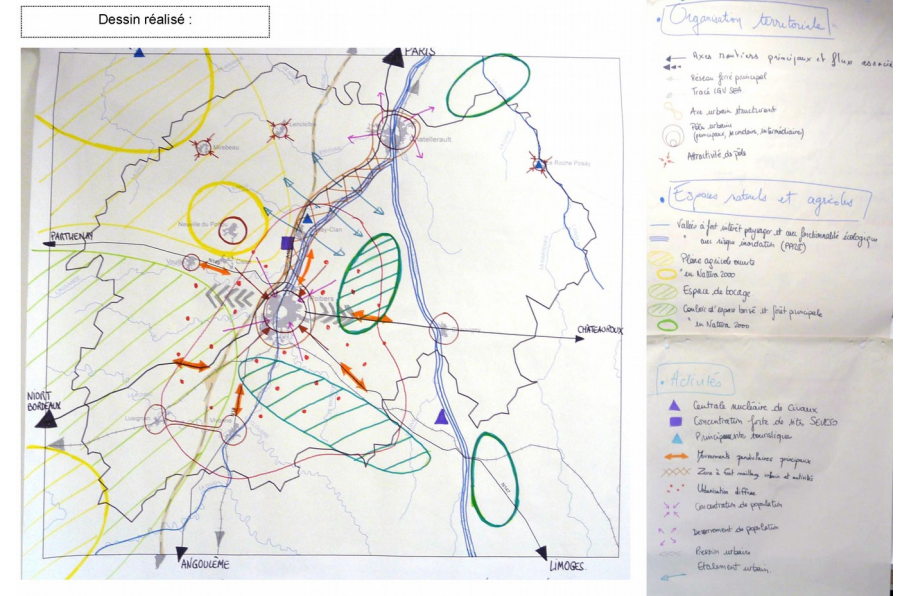 Dessin réalisé :
PARIS
Chatellerault
Lencloitre
Mirebeau
La Roche Posay
Neuville du Poitou
PARTHENAY
Poitiers
CHÂTEAUROUX
NIORT
BORDEAUX
Lusignan
Vivonne
ANGOULÊME
LIMOGES
Organisation territoriale
Axes routiers principaux et flux associés
Réseau ferré principal
Tracé LGV SEA
Arc urbain structurant
Pôle urbain
(principaux, secondaire, intermédiaire)
Attractivité de pôle
Espaces naturels et agricoles
Vallées à fort intérêt paysager et aux fonctionnalités écologiques
" aux risque inondation (PPRI)
Plaine agricole ouverte
" en Natura 2000
Espace de bocage
Couloir d'espace boisé et forêt principale
" en Natura 2000
Activités
Centrale nucléaire de Civaux
Concentration forte de site SEVESO
Principaux sites touristiques
Mouvements pendulaires principaux
Zone à fort maillage urbain et activité
Urbanisation diffuse
Concentration de population
Desserrement de population
Pression urbaine
Etalement urbain